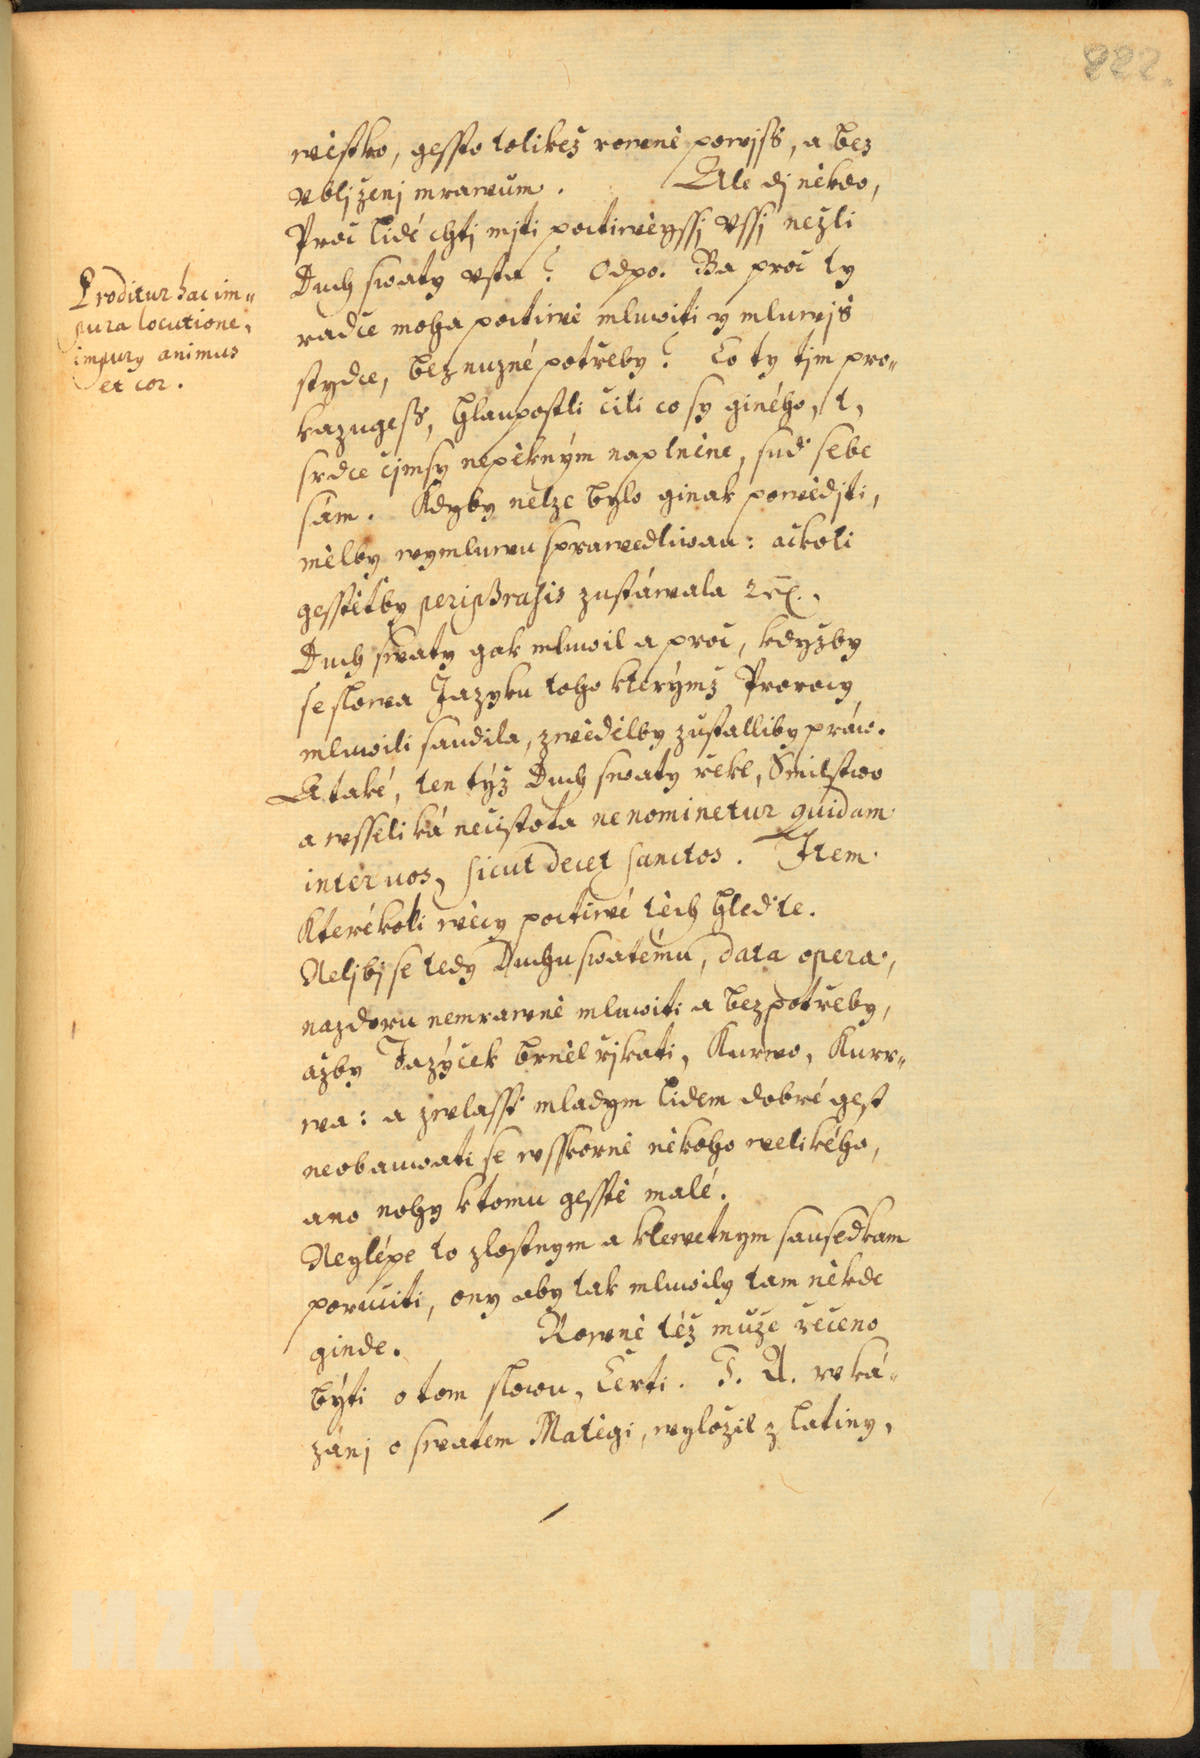 222.
wěstko, gessto tolikéž rowně powjš, a bez
vbljženj mrawům. Ale dj někdo,
Proč lidé chtj mjti poctiwěgssj vssj nežli
Duch swatý vsta? Odpo. Ba proč ty
radče moha poctiwě mluwiti y mluwjš
stydce, bez nuzné potřeby? Co ty tjm pro„
kazugeš, hlaupostli čili co sy giného, t,
srdce čjmsy nepěkným naplněné, suď sebe
sám. Kdyby nelze bylo ginak powědjti,
mělby wymluwu sprawedliwau: ačkoli
gesstětby periphrasis zustáwala etc.
Duch swatý gak mluwil a proč, kdyžby
se slowa Jazyku toho kterýmž Prorocy
mluwili saudila, zwěděl by zustalliby práw.
A také, ten týž Duch swatý řekl, Smilstwo
a wsseliká nečistota ne nominetur quidam
inter uos, sicut decet sanctos. Item
Kterékoli wěcy poctiwé těch hleďte.
Neljbj se tedy Duchu swatému, data opera,
nazdoru nemrawně mluwiti a bez potřeby,
ažby Jazýček brněl řjkati, Kurwo, Kur„
wa: a zwlásstˇ mladym lidem dobré gest
neobawati se wsskorně někoho welikého,
ano nohy k tomu gesstě malé.
Neylépe to zlostnym a klewetnym sausedkam
poručiti, ony aby tak mluwily tam někde
ginde. Rowně též muže řečeno
býti o tom slowu, Čerti. J. A. w ká„
zánj o swatem Matěgi, wyložil z latiny,
Proditur hac im„
pura locutione,
impurus animus
et cor.
MZK
MZK